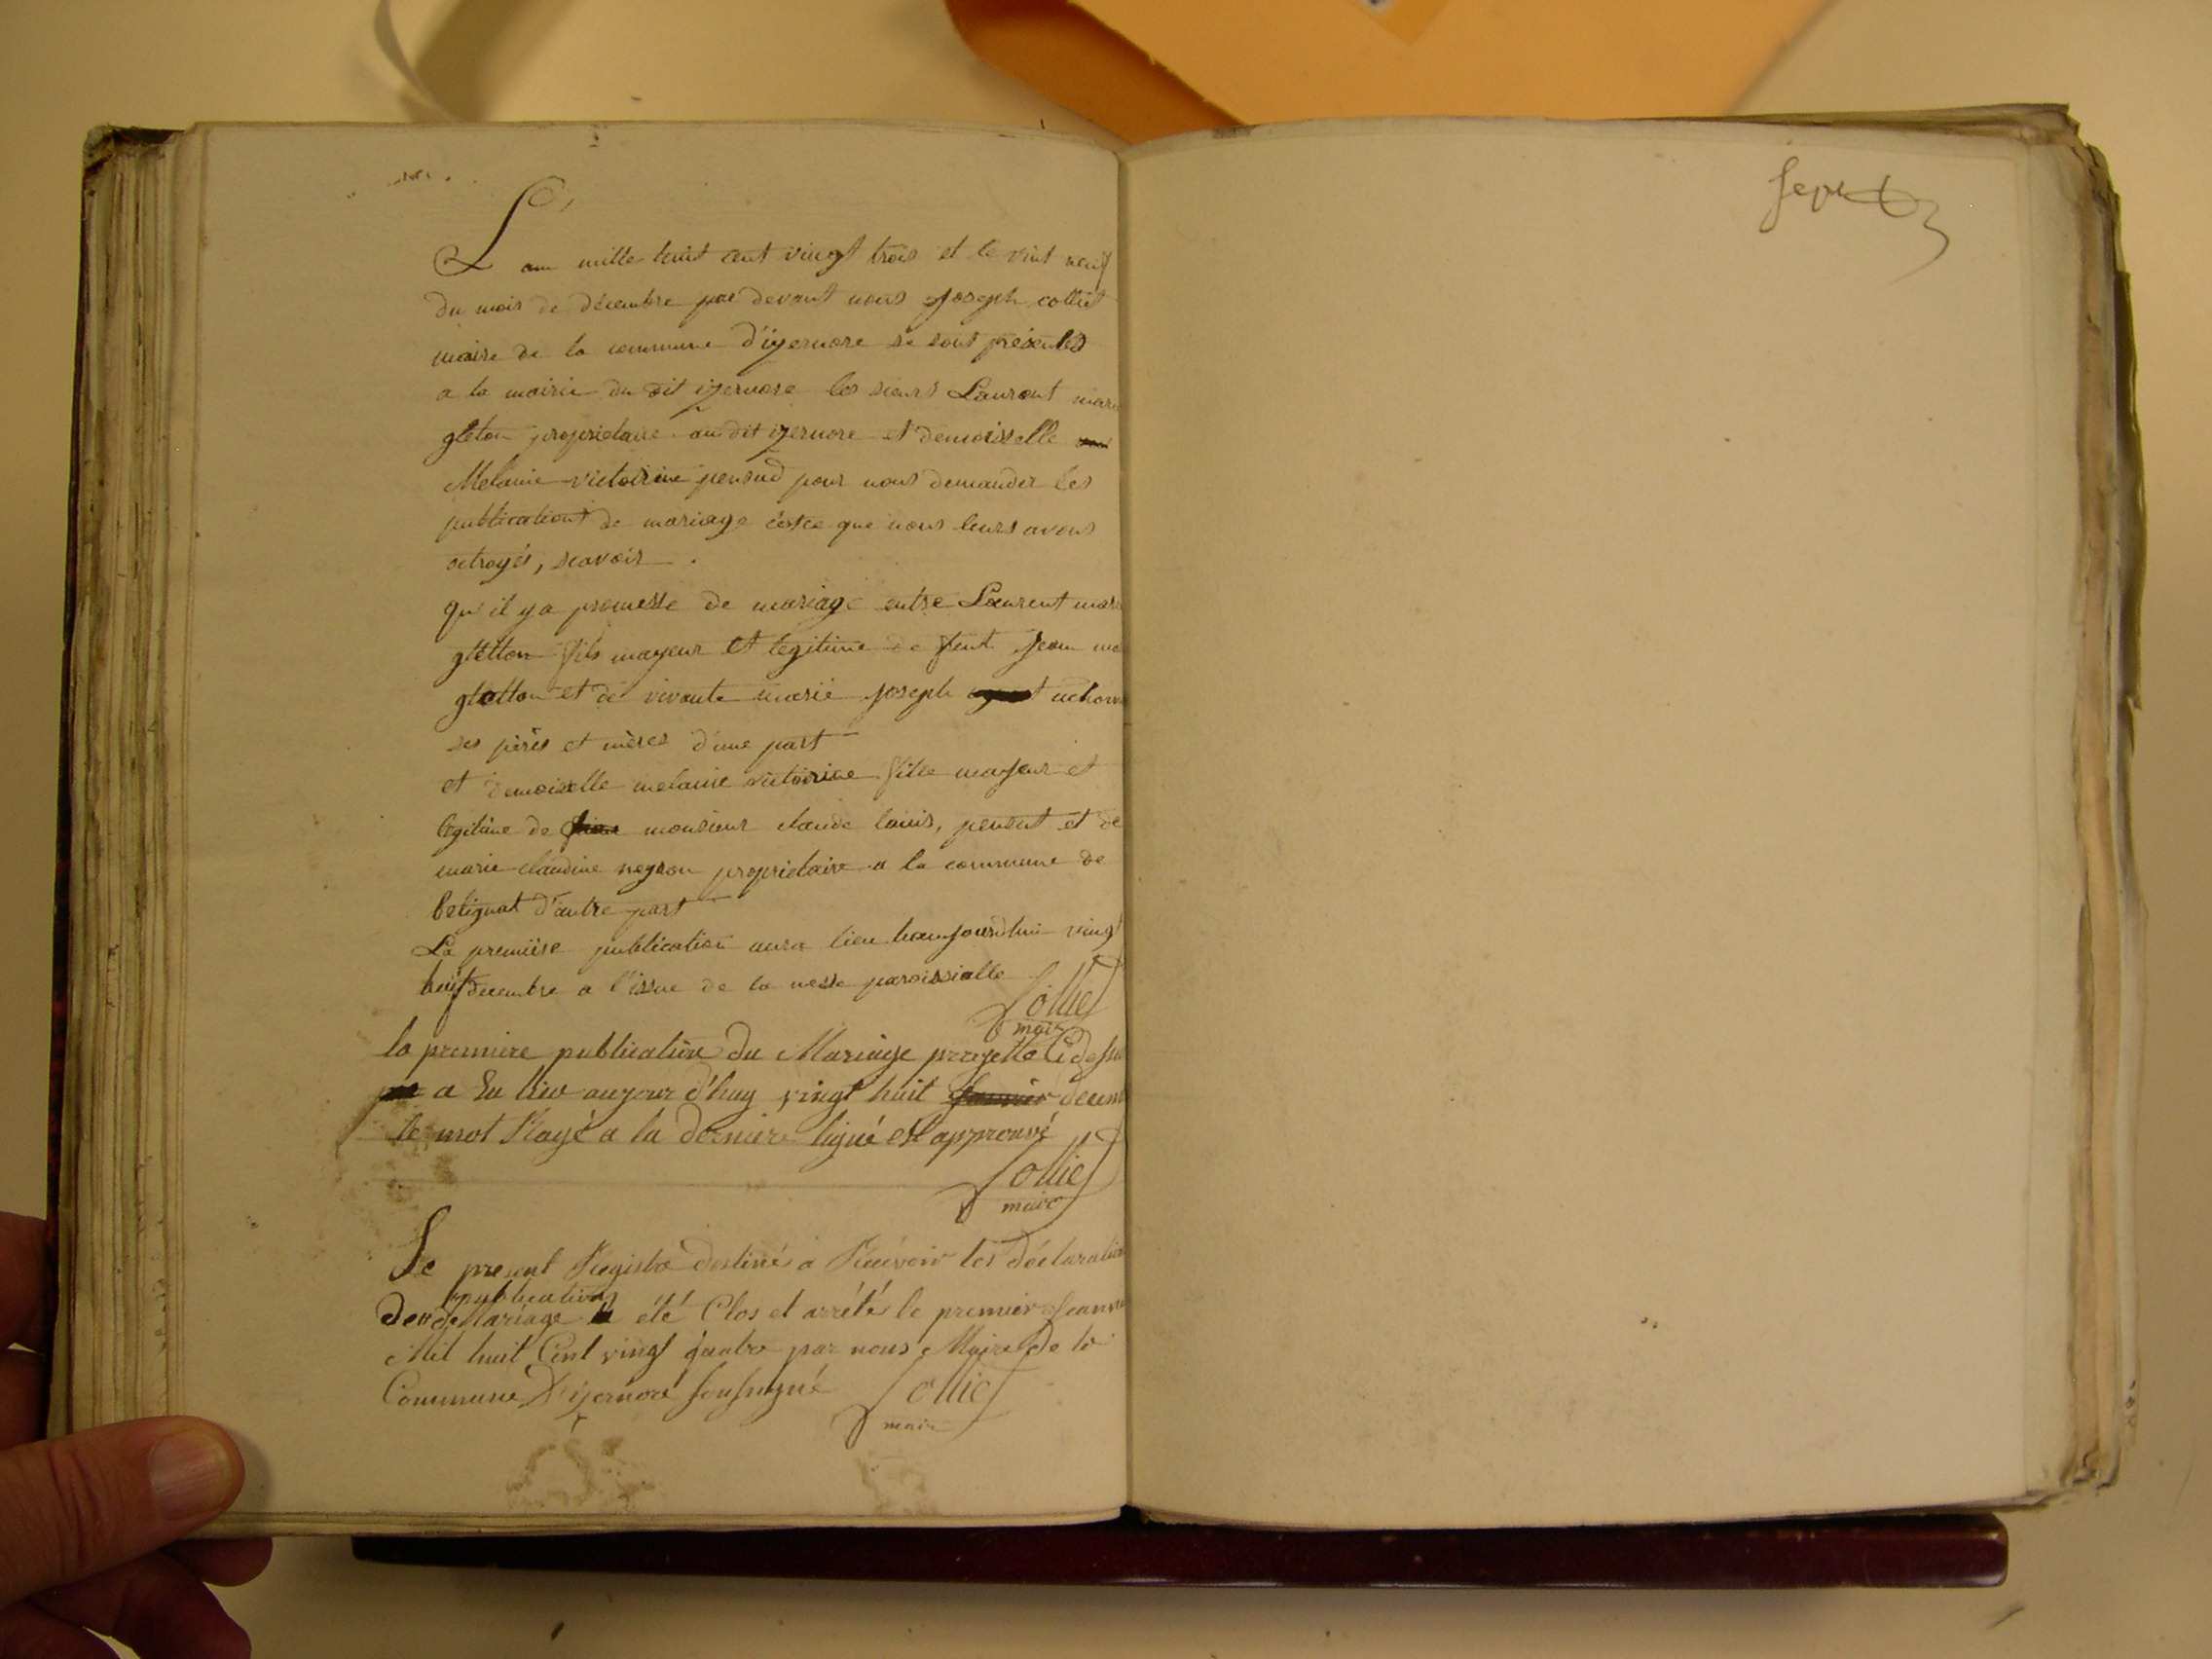 L'an mille huit cent vingt trois et le vint neuf
du mois de décembre par devant nous Joseph colliet
maire de la commune d'izernore se sont présentés
a la mairie du dit izernore les sieurs Laurent mari
gleton proprietaire au dit izernore et demoisselle
Melanie victoirine pensud pour nous demander les
publications de mariage cestce que nous leurs avons
octroyés, scavoir .
qu'il y a promesse de mariage entre Laurent mari
gletton fils mayeur et legitime de feut Jean ma
gletton et de vivante marie Joseph
ses pères et mères d'une part
et demoiselle melanie victoirine fille mayeur et
legitime de monsieur claude louis, pensut et de
marie claudine neyron proprietaire a la commune de
betignat d'autre part
La premiere publication aura lieu haujourdhui vingt
huit decembre a l'issue de la messe paroissialle
Colliet
maire
la premiere publication du Mariage projetté Cidessu
a Eu lieu aujour d'huy vingt huit decem
le mot Rayé a la derniere ligne est approuvé
Colliet
maire
Le present Registre destiné a Recevoir les déclaration
publication
de Mariage a été Clos et arrété le premier Jeanvi
Mil huit Cent vingt quatre par nous Maire de la
Commune D'izernore soussigné Colliet
maire
sept